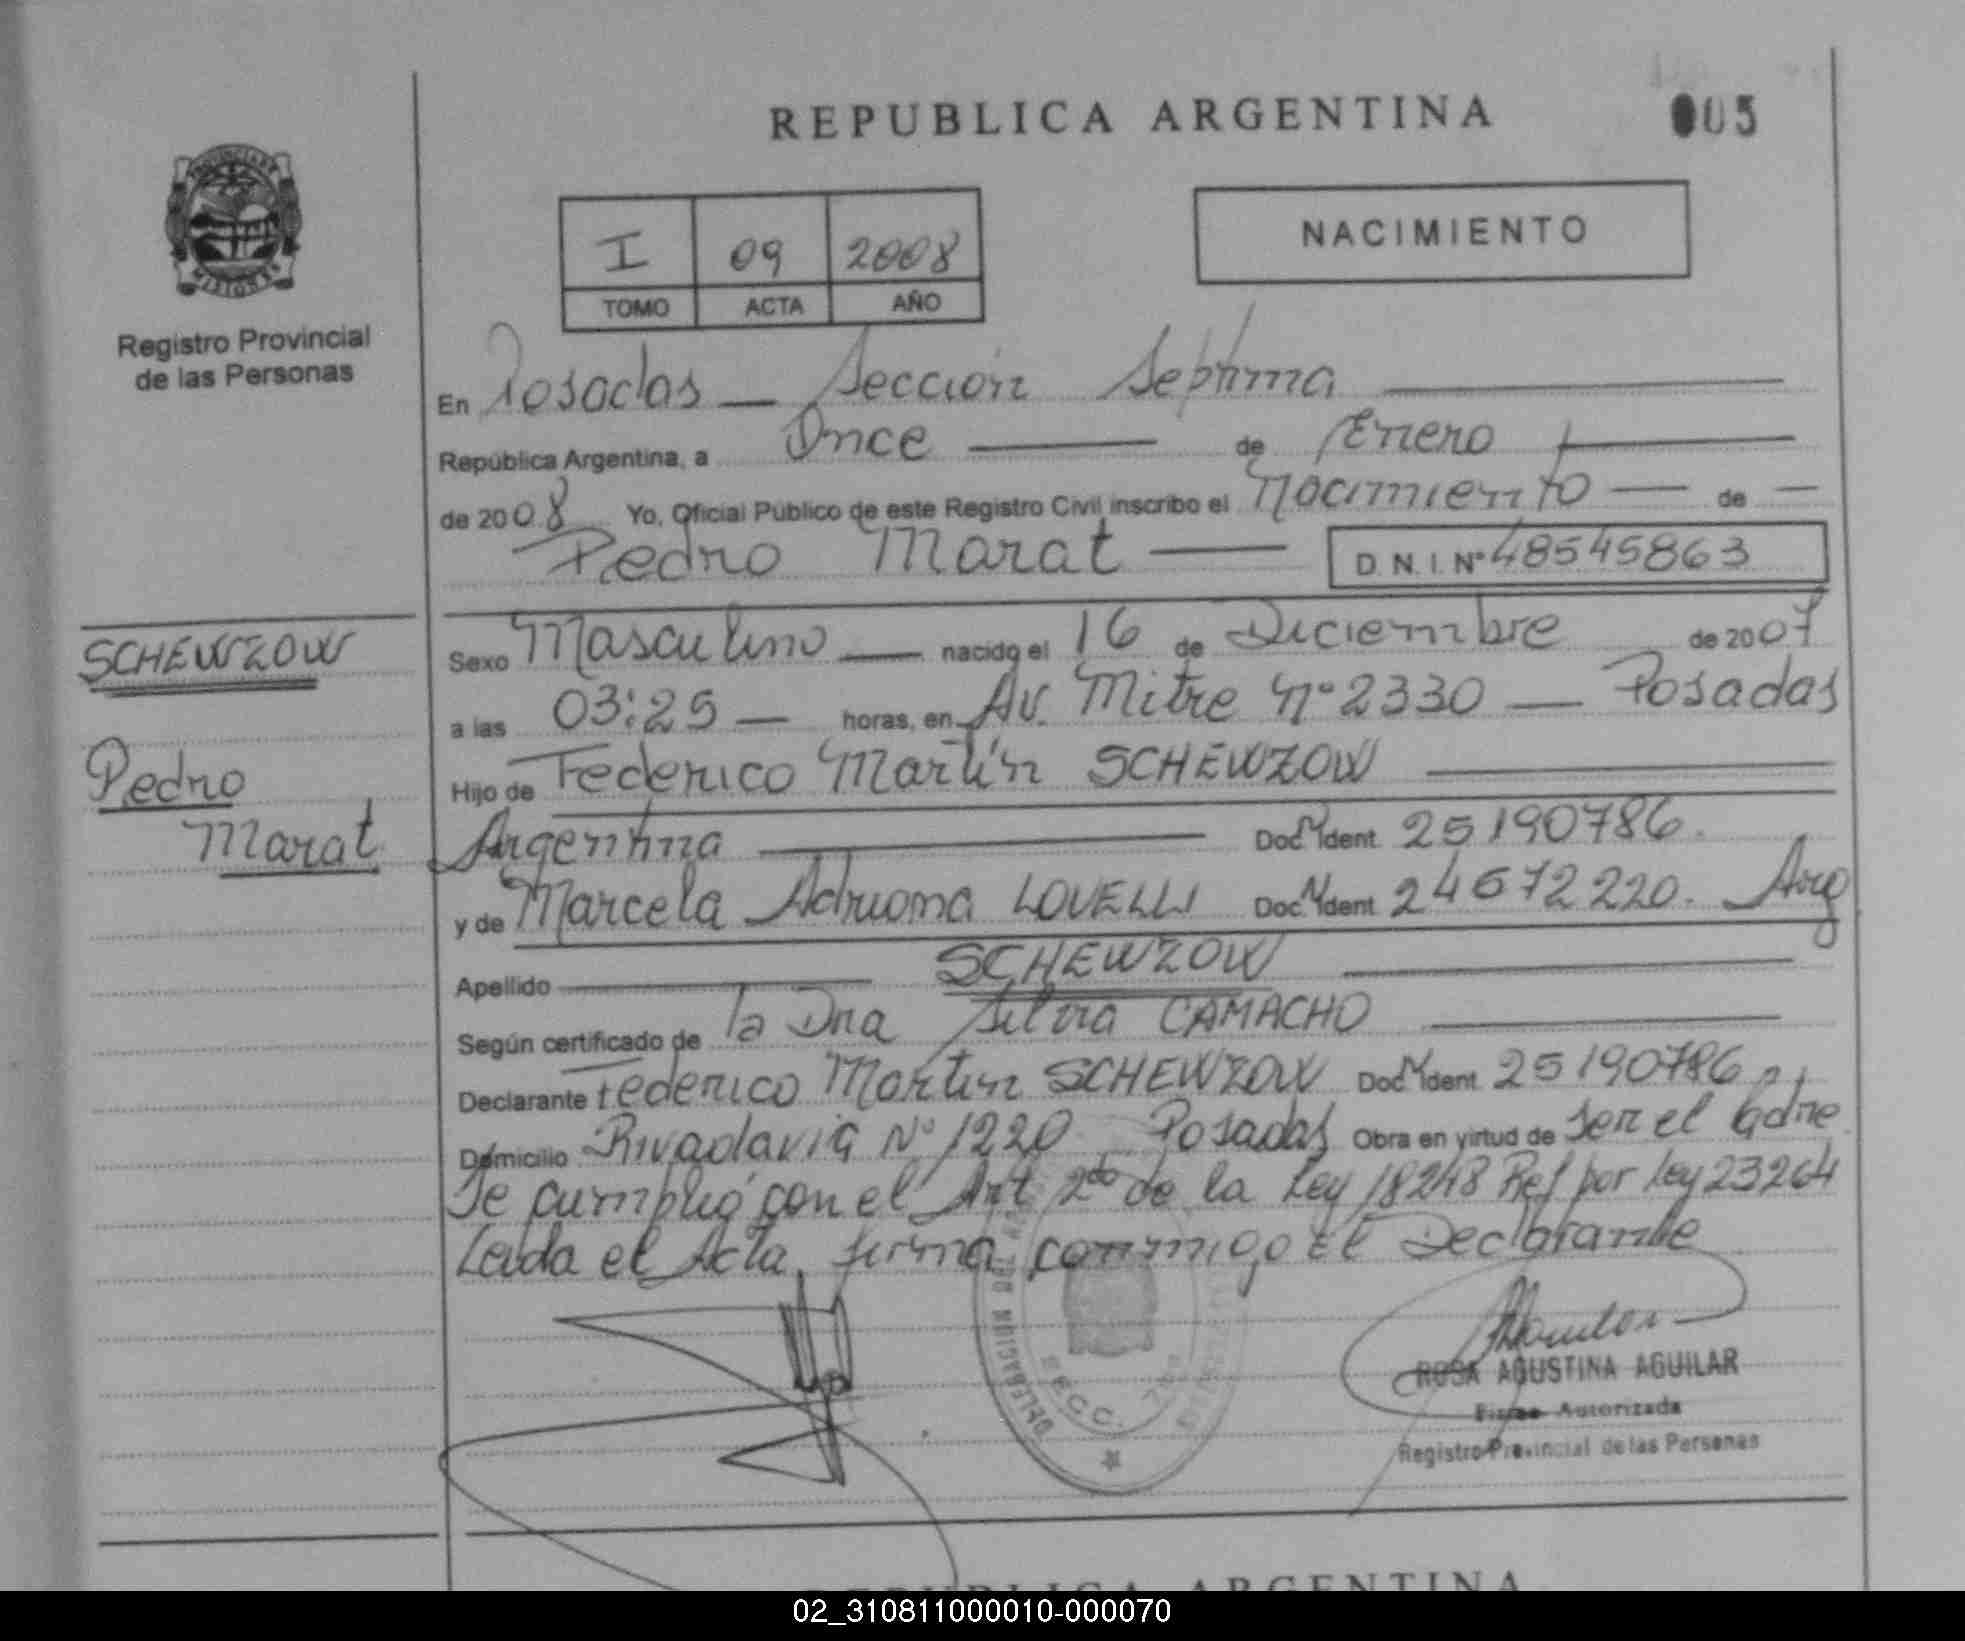 REPUBLICA ARGENTINA
005
PROVINCIA DE
MISIONES
Registro Provincial
de las Personas
I 09 2008
TOMO ACTA AÑO
NACIMIENTO
En Posadas — Sección Septima
República Argentina, a Once de Enero
de 2008 Yo, Oficial Público de este Registro Civil inscribo el Nacimiento — de —
Pedro Marat — D.N.I. Nº 48545863
SCHEWZOW
Pedro
Marat
Sexo Masculino nacido el 16 de Diciembre de 2007
a las 03:25 — horas, en Av. Mitre Nº 2330 — Posadas
Hijo de Federico Martín SCHEWZOW
Argentina Doc. Ident. 25190786.
y de Marcela Adriana LOVELLI Doc. Ident. 24672220. Arg
Apellido SCHEWZOW
Según certificado de la Dra Silvia CAMACHO
Declarante Federico Martin SCHEWZOW Doc. Ident. 25190786
Domicilio Rivadavia Nº 1220 Posadas Obra en virtud de ser el Padre
Se cumplió con el Art 2do de la Ley 18248 Ref por Ley 23264
Leida el Acta, firma conmigo El Declarante
DELEGACION
SECC. 7ma
ROSA AGUSTINA AGUILAR
Firma Autorizada
Registro Provincial de las Personas
REPUBLICA ARGENTINA
02_310811000010-000070